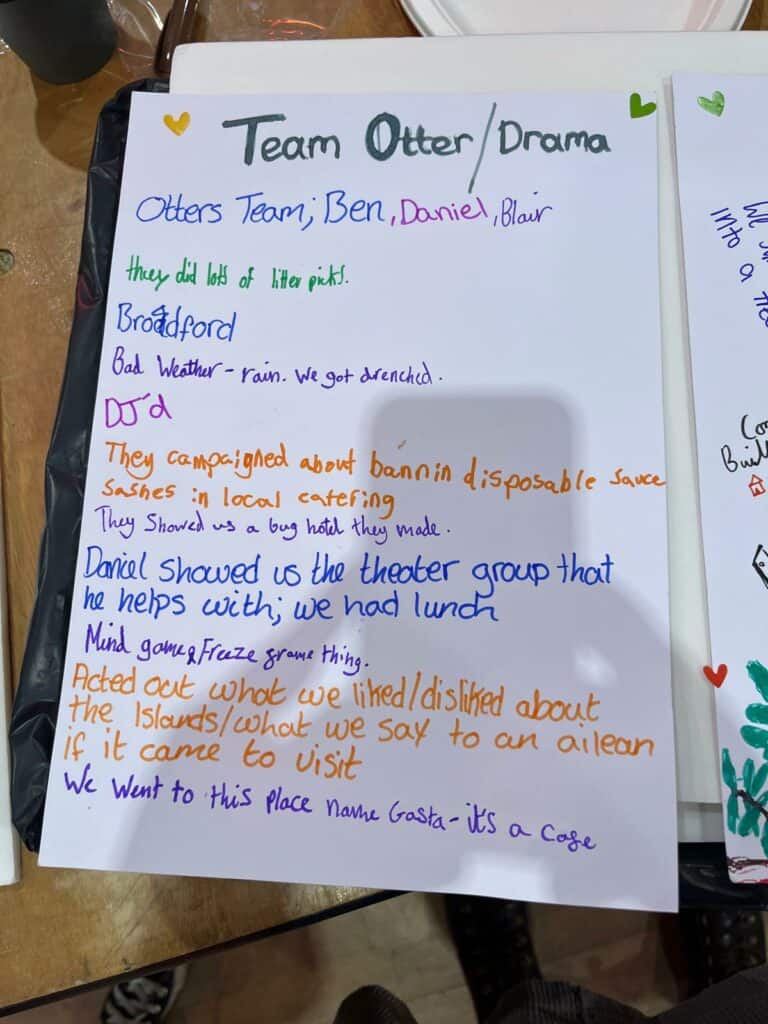 Team Otter/Drama
Otters Team; Ben, Daniel, Blair
they did lots of litter picks.
Broadford
Bad Weather - rain. We got drenched.
DJ'd
They campaigned about bannin disposable sauce
sashes in local catering
They Showed us a bug hotel they made.
Daniel showed us the theater group that
he helps with; we had lunch
Mind game & Freeze grame thing.
Acted out what we liked/disliked about
the Islands/what we say to an ailean
if it came to visit
We Went to this place name Gasta - it's a Cafe
We
into a
Buil